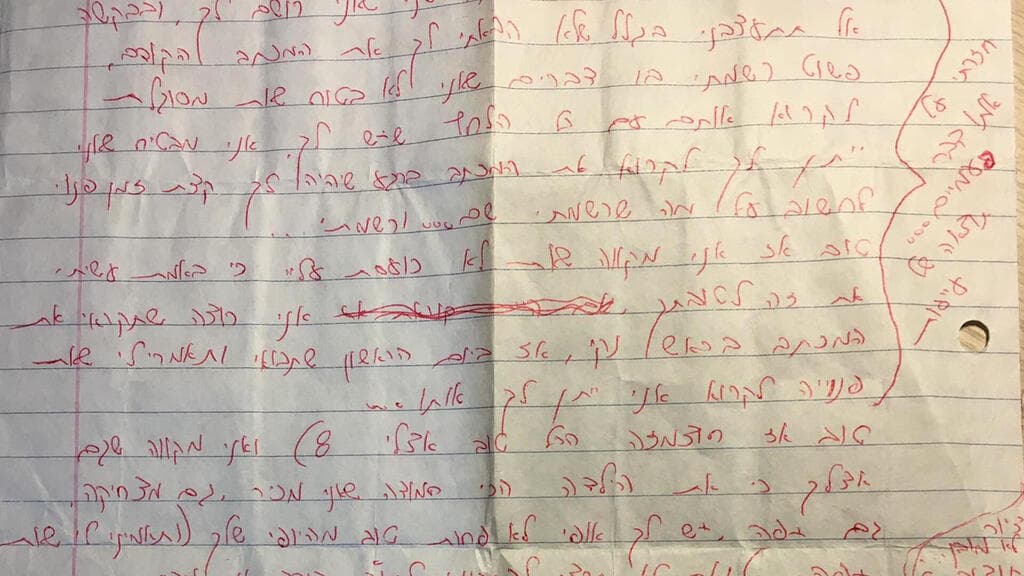 אני רושם לך, ובבקשה
אל תתעצבני בגלל שלא הבאתי לך את המכתב הקודם,
פשוט רשמתי בו דברים שאני לא בטוח שאת מסוגלת
לקרוא אותם עם כל הלחץ שיש לך, אני מבטיח שאני
ייתן לך לקרוא את המכתב ברגע שיהיה לך קצת זמן פנוי
לחשוב על מה שרשמתי שם... ורשמתי...
טוב אז אני מקווה שאת לא כועסת עליי כי באמת עשיתי
את זה לטובתך, אני רוצה שתקראי את
המכתב בראש נקי, אז ביום הראשון שתבואי ותאמרי לי שאת
פנויה לקרוא אני ייתן לך אותו...
טוב אז חוצמזה הכל טוב אצלי 8) ואני מקווה שגם
אצלך כי את הילדה הכי חמודה שאני מכיר, גם מצחיקה,
גם יפה, יש לך אופי לא פחות טוב מהיופי שלך (ותאמיני לי שאת
חזרתי
על
אותו דבר
פעמיים...